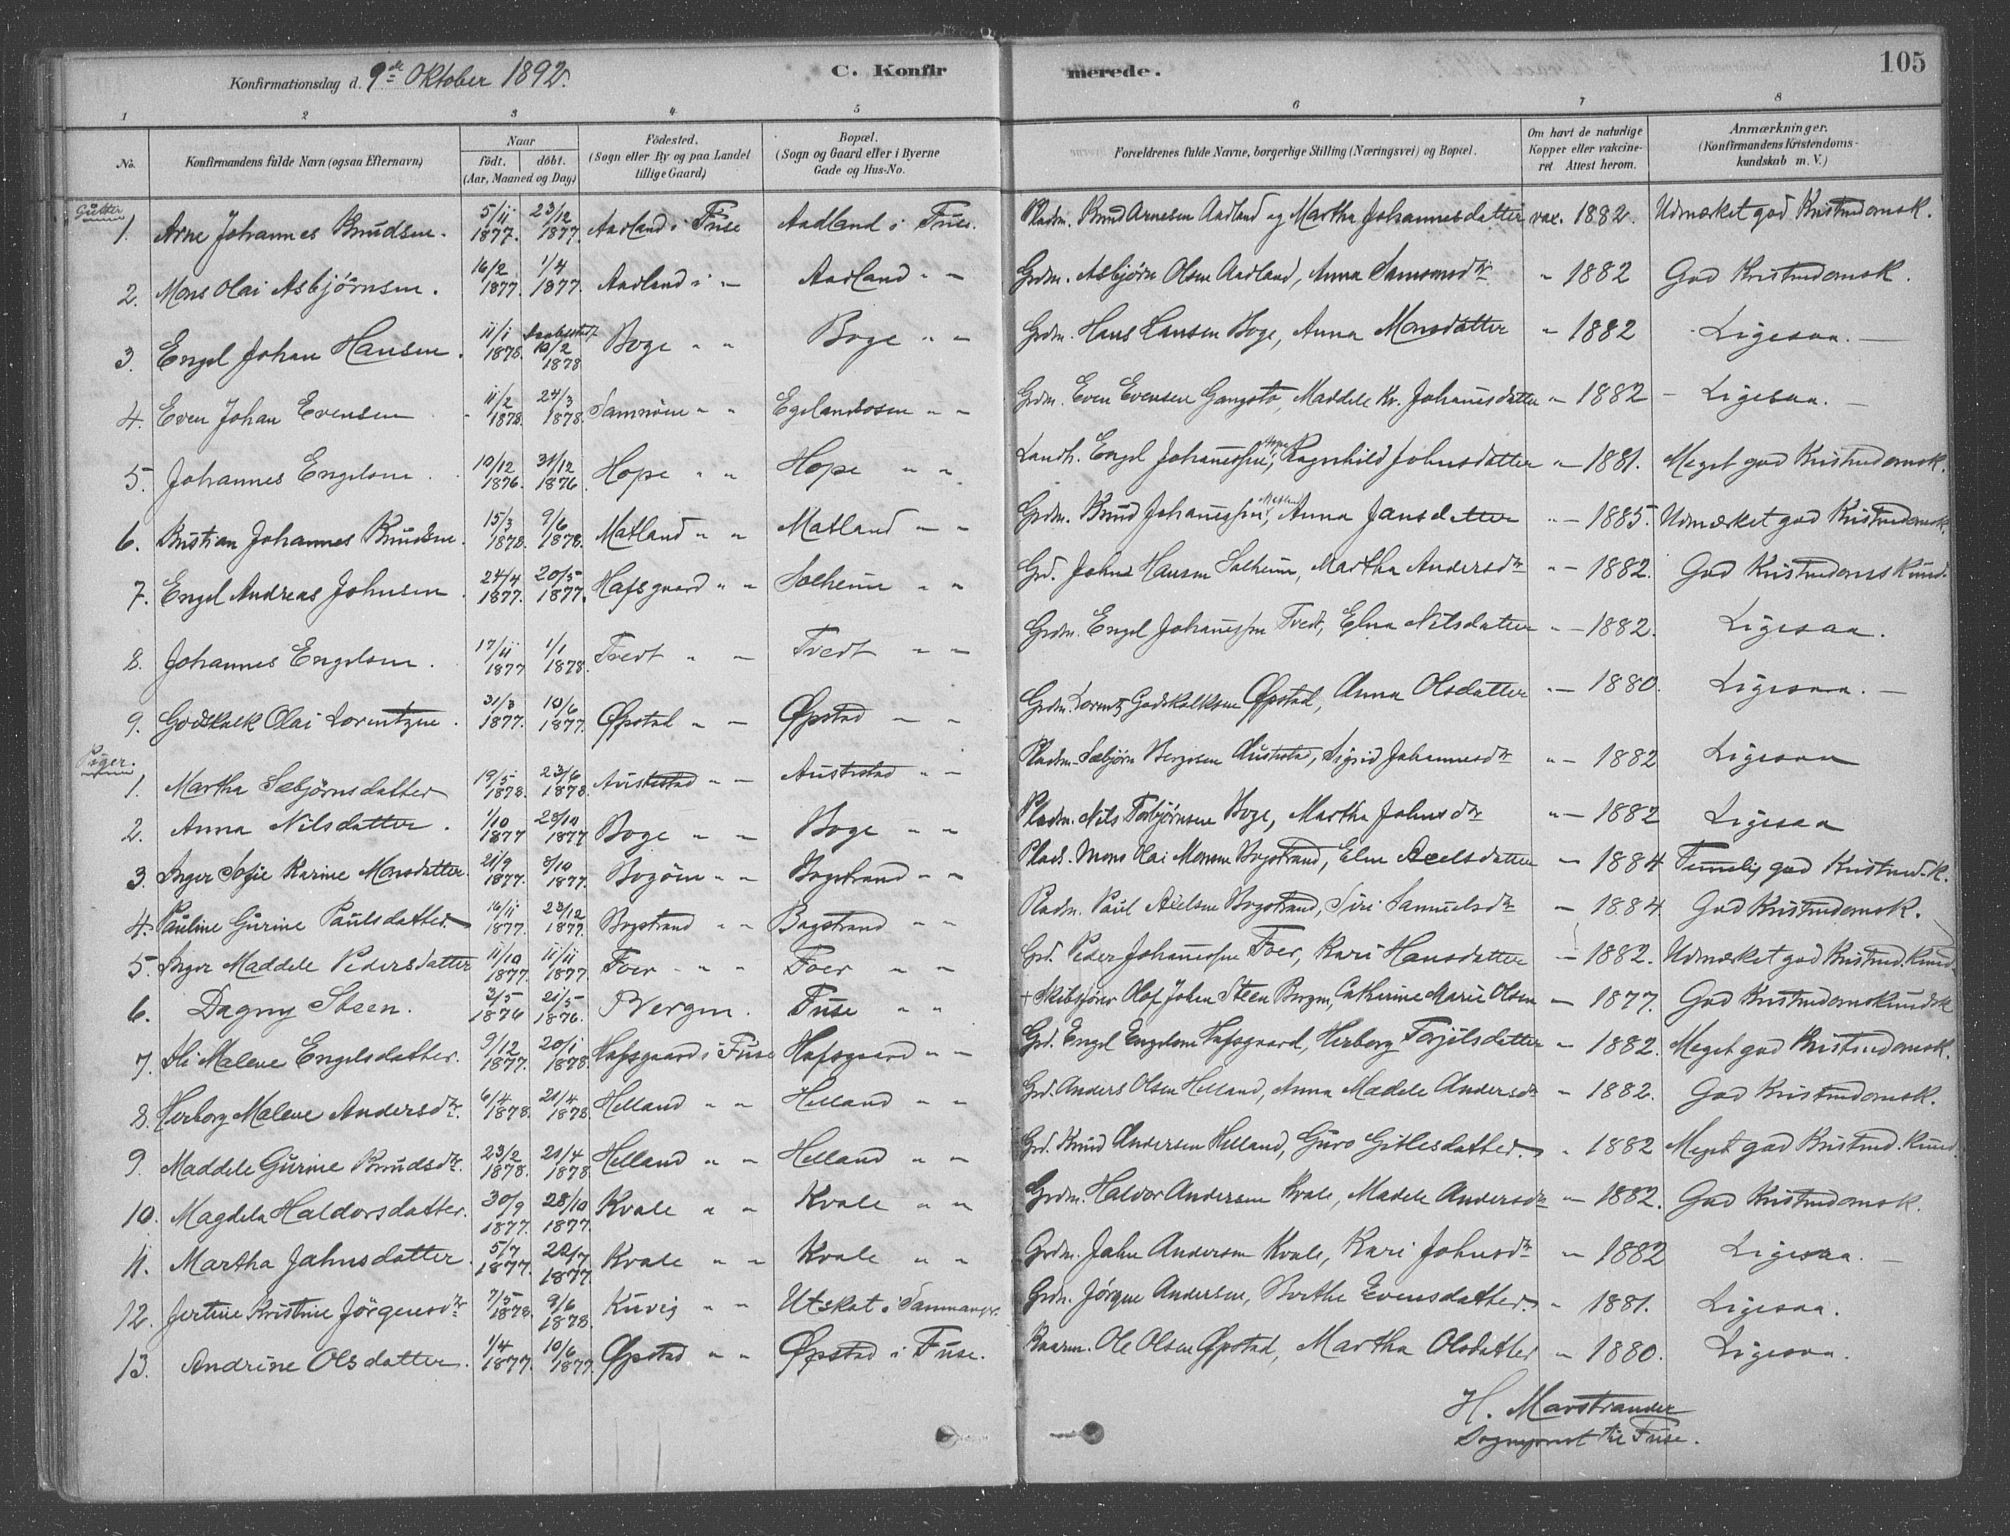 Konfirmationsdag d. 9de Oktober 1892. C. Konfirmerede. 105
1 2 3 4 5 6 7 8
No. Konfirmandens fulde Navn (ogsaa Efternavn) Naar Födt. döbt. (Aar, Maaned og Dag) Födested. (Sogn eller By og paa Landet tillige Gaard) Bopæl. (Sogn og Gaard eller i Byerne Gade og Hus-No. Forældrenes fulde Navne, borgerlige Stilling (Næringsvei) og Bopæl. Om havt de naturlige Kopper eller vakcineret Attest herom. Anmærkninger. (Konfirmandens Kristendomskundskab m. V.)
Gutter
1. Arne Johannes Knudsen. 5/11 1877. 23/12 1877. Aadland i Fuse Aadland i Fuse. Pladm. Knud Arnesen Aadland og Martha Johannesdatter vax. 1882. Udmærket god Kristendomsk.
2. Mons Olai Asbjørnsen. 16/2 1877. 1/4 1877. Aadland i - Aadland " - Grdm. Asbjørn Olsen Aadland, Anna Samsonsdtr " 1882 God Kristendomsk.
3. Engel Johan Hansen. 11/1 1878. 10/2 1878 Boge " " Boge " - Grdm. Hans Hansen Boge, Anna Monsdatter " 1882 Ligesaa. -
4. Even Johan Evensen 11/2 1878. 24/3 1878. Samnøen " " Egelandsosen " - Grdm. Even Evensen Gangstø, Maddele Kr. Johannesdatter " 1882 - Ligesaa. -
5. Johannes Engelsen. 10/12 1876. 31/12 1876 Hope " " Hope " " Landh. Engel Johannessen Hope, Ragnhild Johnsdatter " 1881. Meget god Kristendomsk.
6. Kristian Johannes Knudsen. 15/3 1878. 9/6 1878. Matland " " Matland " - Grdm. Knud Johannessen, Anna Jansdatter " - 1885. Udmærket god Kristendomsk.
7. Engel Andreas Johnsen. 24/4 1877. 20/5 1877. Hafsgaard " " Solheim " " Grd. John Hansen Solheim, Martha Andersdtr " - 1882. God Kristendomskund.
8. Johannes Engelsen. 17/11 1877 1/1 1878. Tvedt " - Tvedt " - Grdm. Engel Johannessen Tvedt, Elna Nilsdatter " - 1882. Ligesaa.
9. Godskalk Olai Lorentzen. 31/3 1877. 10/6 1877. Øpstad " - Øpstad " - Grdm. Lorentz Godskalksen Øpstad, Anna Olsdatter " - 1880. Ligesaa. -
Piger.
1. Martha Sæbjørnsdatter 19/5 1878. 23/6 1878. Austestad " - Austestad " - Pladm. Sæbjørn Bergesen Austestad, Sigrid Johannesdtr " - 1882 Ligesaa
2. Anna Nilsdatter. 1/10 1877 28/10 1877 Boge " " Boge " " Pladm. Nils Torbjørnsen Boge, Martha Johnsdtr " - 1882 Ligesaa
3. Inger Sofie Karine Monsdatter. 21/9 1877. 8/10 1877. Bogøen " " Bogstrand " " Plads. Mons Olai Monsen Bogstrand, Elen Axelsdatter - 1884 Temelig god Kristend.k.
4. Pauline Gurine Paulsdatter. 16/11 1877. 23/12 1877. Bogstrand " " Bogstrand " " Pladm. Paul Axelsen Bogstrand, Siri Samuelsdtr - 1884 God Kristendomsk.
5. Inger Maddele Pedersdatter 11/10 1877. 11/11 1877 Foer " " Foer " " Grd. Peder Johannessen Foer, Kari Hansdatter - 1882. Udmærket god Kristend.kund.
6. Dagny Steen. 3/5 1876 21/5 1876. Bergen. Fuse " " + Skibsfører Olaf Johan Steen Bergen, Catharine Marie Olsen - 1877. God Kristendomskundsk
7. Eli Malene Engelsdatter. 9/12 1877. 20/1 1878. Hafsgaard i Fuse Hafsgaard " - Grd. Engel Engelsen Hafsgaard, Herborg Torjilsdatter - 1882. Meget god Kristendomsk.
8. Herborg Malene Andersdtr. 6/4 1878. 21/4 1878. Helland " " Helland " " Grd. Anders Olsen Helland, Anna Madele Andersdtr - 1882. God Kristendomsk.
9. Maddele Gurine Knudsdtr. 23/2 1878. 21/4 1878 Helland " - Helland " " Grd. Knud Andersen Helland, Guro Gitlesdatter. " 1882 Meget god Kristend.kund.
10. Magdela Haldorsdatter. 30/9 1877. 28/10 1877. Kvale " " Kvale " " Grdm. Haldor Andersen Kvale, Madele Andersdtr - 1882. God Kristendomsk.
11. Martha Jahnsdatter. 5/7 1877. 22/7 1877. Kvale " " Kvale " " Grdm. Jahn Andersen Kvale, Kari Johnsdtr " 1882 Ligesaa. -
12. Jertine Kristine Jörgensdtr 7/5 1878. 9/6 1878. Kuvig " " Utskot i Samnanger. Grdm. Jörgen Andersen, Berthe Evensdatter. " 1881. Ligesaa.
13. Andrine Olsdatter. 1/4 1877. 10/6 1877. Øpstad " " Øpstad i Fuse. Kaarm. Ole Olsen Øpstad, Martha Olsdatter " 1880. Ligesaa.
H. Marstrander
Sogneprest til Fuse.